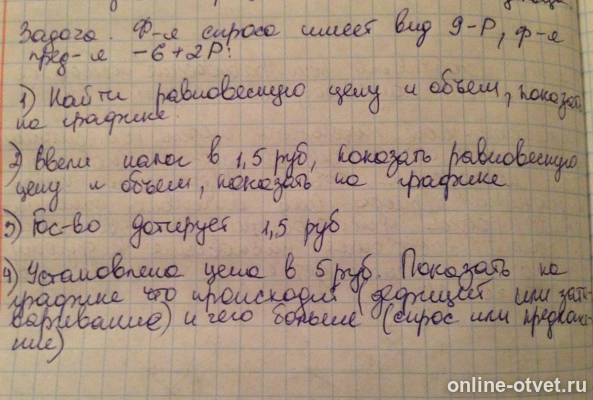 Задача. Ф-я спроса имеет вид 9-P, ф-я
пред-я -6+2P.
1) Найти равновесную цену и объем, показать
на графике
2) Ввели налог в 1,5 руб, показать равновесную
цену и объем, показать на графике
3) Гос-во дотирует 1,5 руб
4) Установлена цена в 5 руб. Показать на
графике что происходит (дефицит или зато-
варивание) и чего больше (спрос или предложе-
ние)
online-otvet.ru